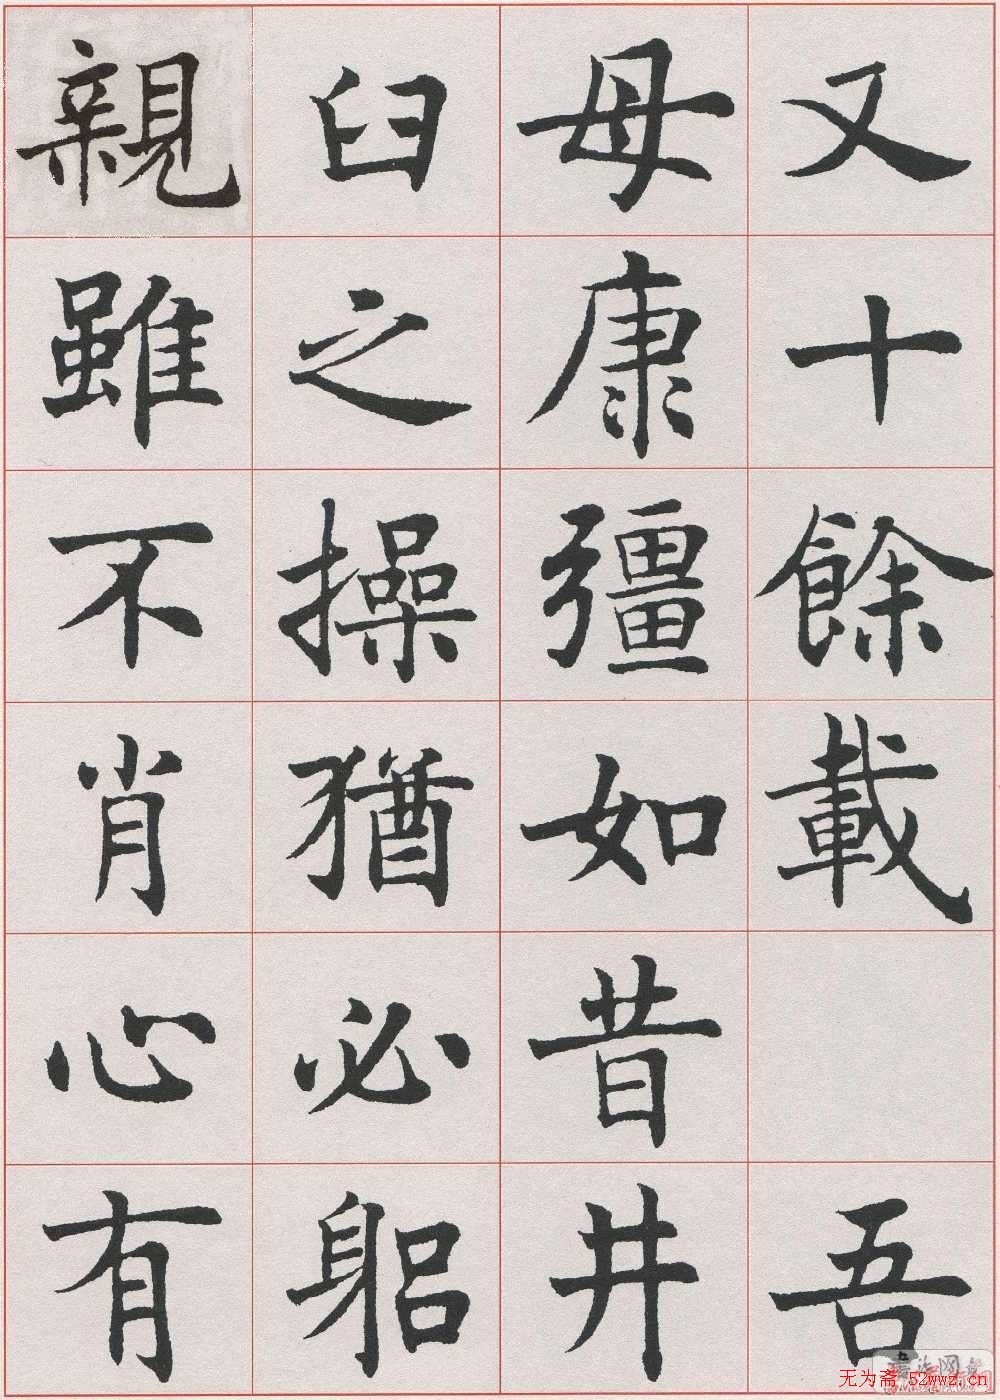 又十餘載 吾
母康彊如昔井
臼之操猶必躬
親雖不肖心有
无为斋 52wwz.cn